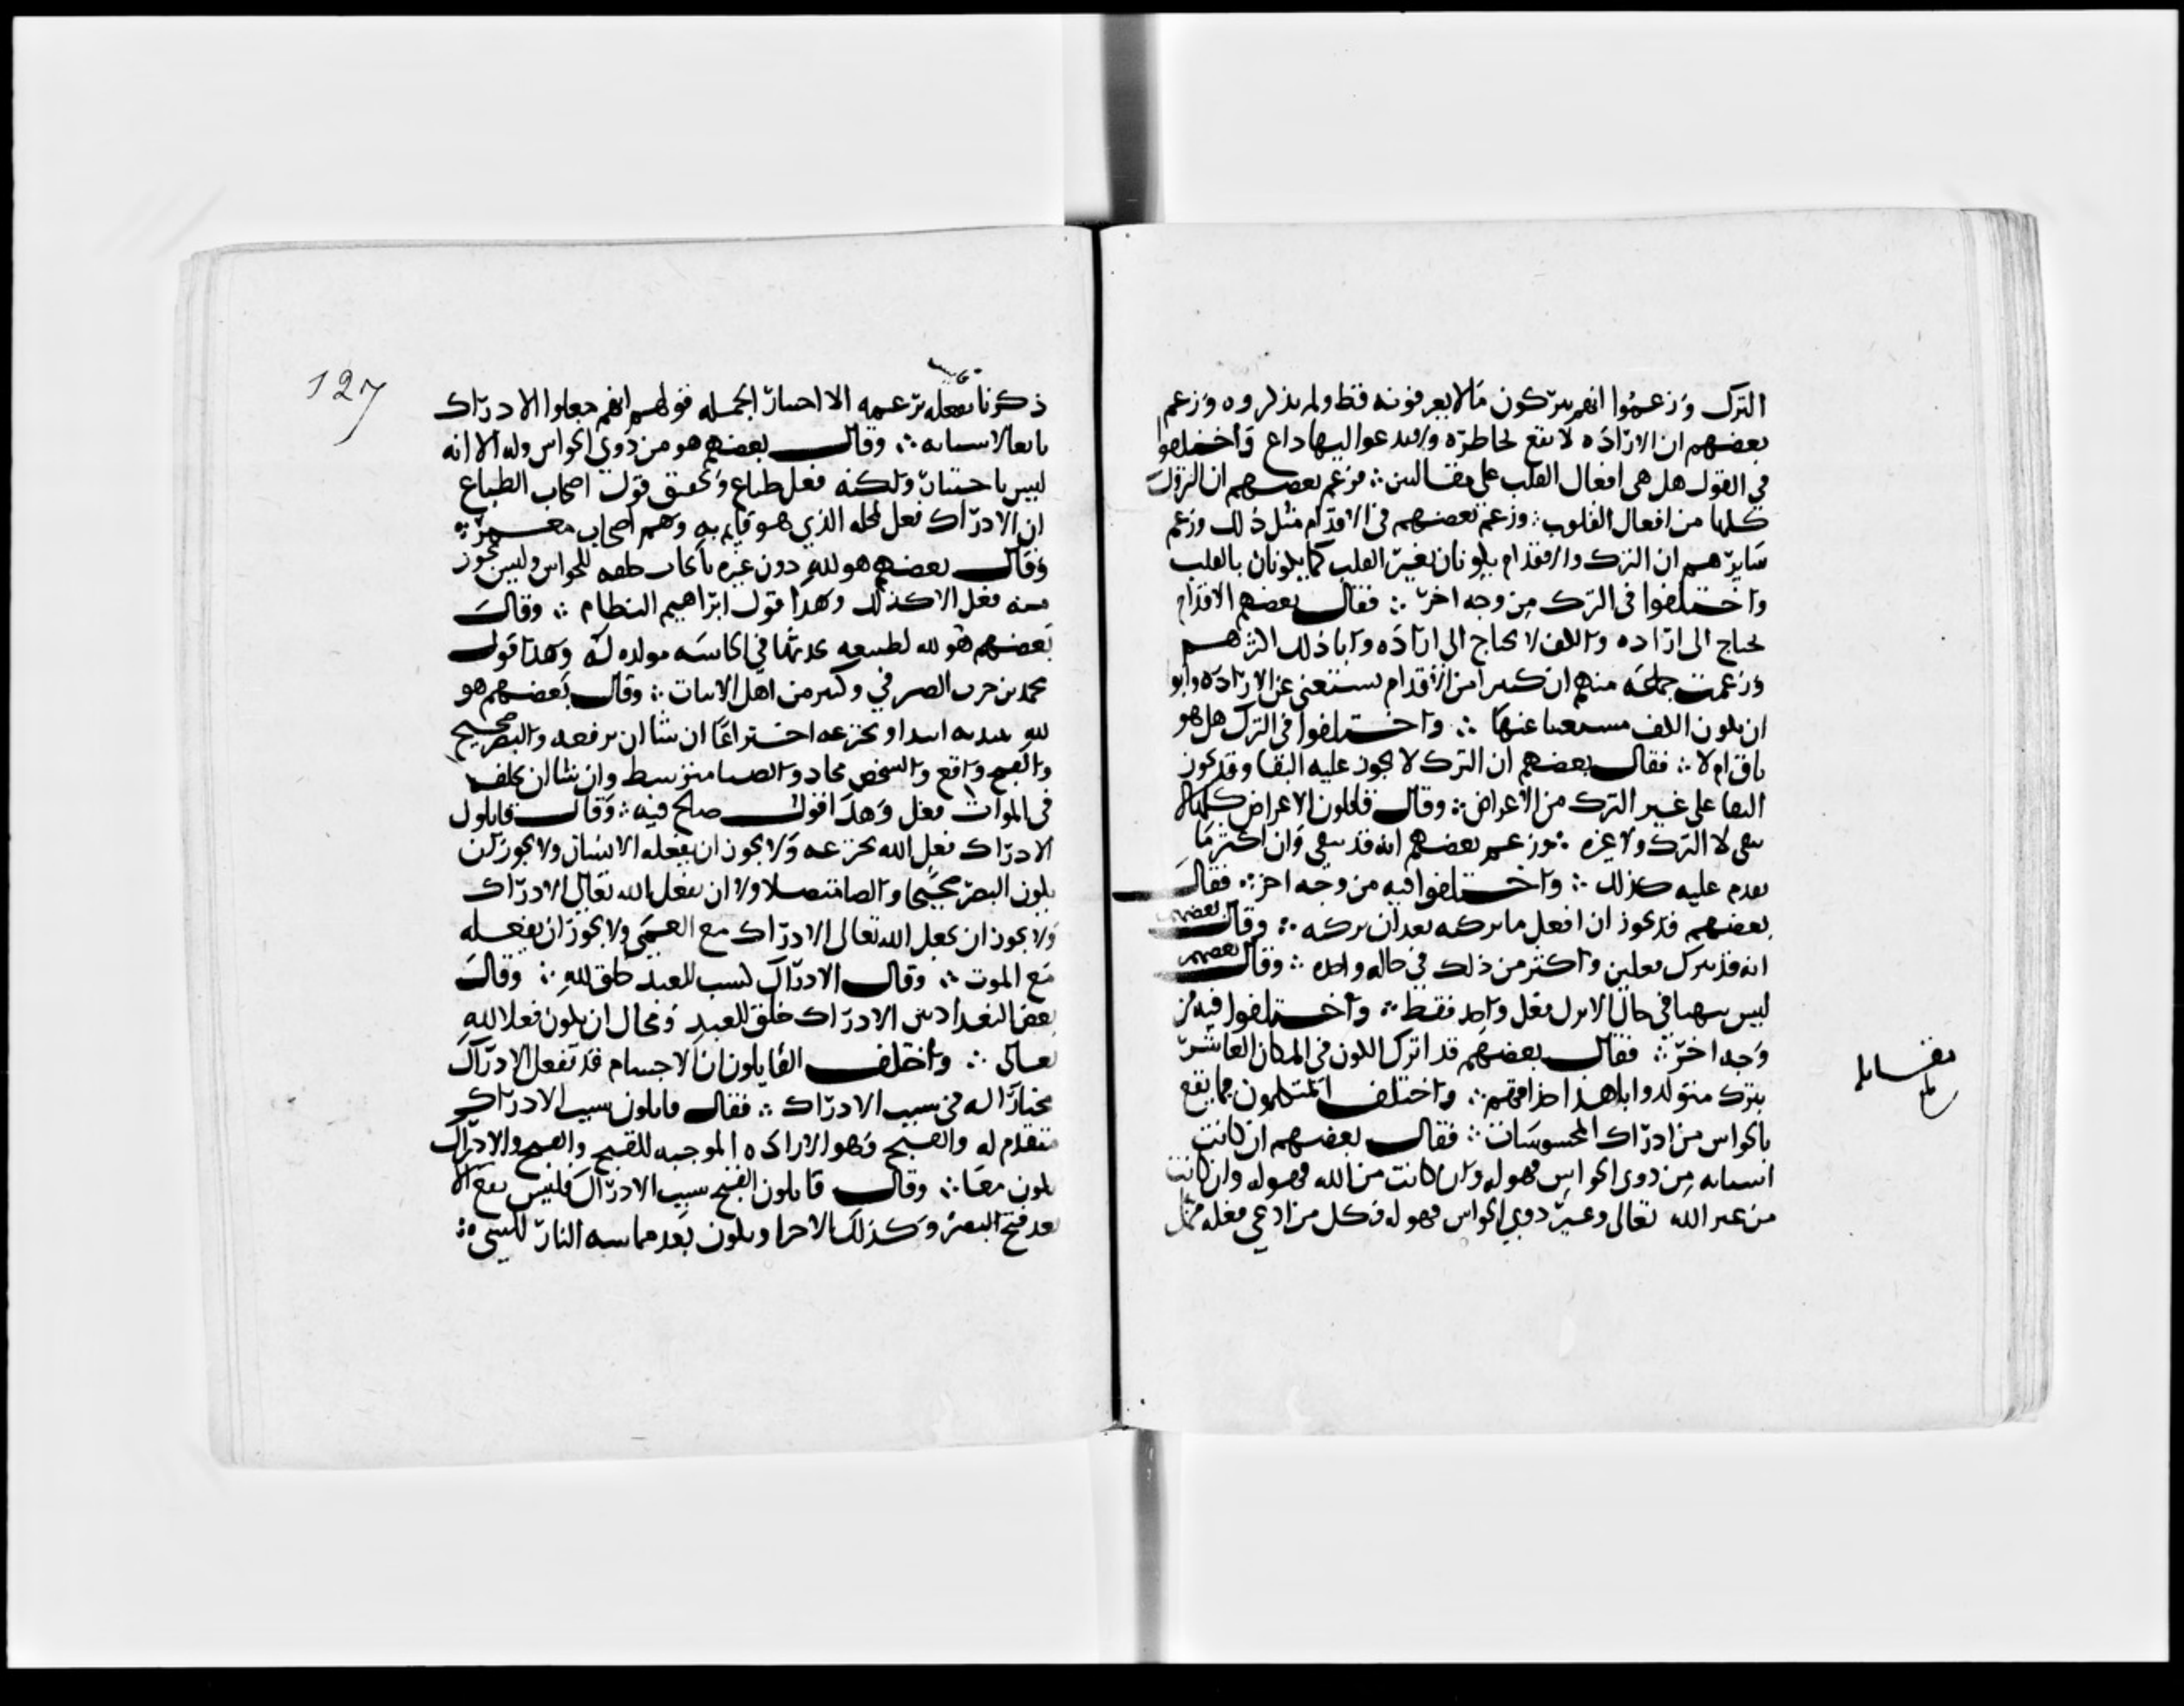 الترك وزعموا انهم يتركون مالا يعرفونه قط ولم يذكروه وزعم
بعضهم ان الارادة لا تقع لخاطره ولا يدعو اليها داع واختلفوا
في القول هل هي افعال القلب على مقالتين ؞ فزعم بعضهم ان التروك
كلها من افعال القلوب ؞ وزعم بعضهم في الاقدام مثل ذلك وزعم
سايرهم ان الترك والاقدام يكونان بغير القلب كما يكونان بالقلب
واختلفوا في الترك من وجه اخر ؞ فقال بعضهم الاقدام
يحتاج الى اراده والكف لا يحتاج الى اراده وابا ذلك اكثرهم
وزعمت جماعه منهم ان كثيرا من الاقدام يستغني عن الاراده وابو
ان يكون الكف مستغنيا عنها ؞ واختلفوا في الترك هل هو
باق ام لا ؞ فقال بعضهم ان الترك لا يجوز عليه البقا وقد يجوز
البقا على غير الترك من الاعراض ؞ وقال قايلون الاعراض كلها لا
تبقى لا الترك ولا غيره ؞ وزعم بعضهم انه قد يبقى وان اكثر ما
يقدم عليه كذلك ؞ واختلفوا فيه من وجه اخر ؞ فقال
بعضهم قد يجوز ان افعل ما تركته بعد ان تركته ؞ وقال بعضهم
انه قد يترك فعلين واكثر من ذلك في حاله واحده ؞ وقال بعضهم
ليس في حال الترك فعل واحد فقط ؞ واختلفوا فيه من
وجه اخر ؞ فقال بعضهم قد اترك الكون في المكان العاشر
بترك متولد وابا هذا حذاقهم ؞ واختلف المتكلمون فيما يقع
بالحواس من ادراك المحسوسات ؞ فقال بعضهم ان كانت
اسبابه من ذوي الحواس فهو له وان كانت من الله فهو له وان كانت
من غير الله تعالى وغير ذوي الحواس فهو له فكل من ادعي فعله ممن
127
ذكرنا فعله يزعمه الا اختيار الجمله قولهم انهم جعلوا الادراك
تابعا لاسبابه ؞ وقال بعضهم هو من ذوي الحواس وله الا انه
ليس باختيار ولكنه فعل طباع وتحقيق قول اصحاب الطباع
ان الادراك فعل لمحله الذي هو قايم به وهم اصحاب معمر ؞
وقال بعضهم هو لله دون غيره بايجاب خلقه للحواس وليس يجوز
منه فعل الا كذلك وهذا قول ابراهيم النظام ؞ وقال
بعضهم هو لله لطبيعه يحدثها في الحاسه مولده له وهذا قول
محمد بن حرب الصيرفي وكثير من اهل الاثبات ؞ وقال بعضهم هو
لله يبتديه ابتدا ويخترعه اختراعا ان شا ان يرفعه والبصر صحيح
والفتح واقع والشخص محاذ والضيا متوسط وان شا ان يخلقه
في الموات فعل وهذا قول صالح فيه ؞ وقال قايلون
الادراك فعل الله يخترعه ولا يجوز ان يفعله الانسان ولا يجوز ان
يكون البصر صحيحا والضيا متصلا ولا ان يفعل الله تعالى الادراك
ولا يجوز ان يجعل الله تعالى الادراك مع العمى ولا يجوز ان يفعله
مع الموت ؞ وقال الادراك كسب للعبد خلق لله ؞ وقال
بعض البغداديين الادراك خلق للعبد ومحال ان يكون فعلا لله
تعالى ؞ واختلف القايلون ان الاجسام قد تفعل الادراك
مختارا له في سبب الادراك ؞ فقال قايلون سبب الادراك
متقدم له والفتح وهو الاراده الموجبه للفتح والفتح والادراك
يكون معا ؞ وقال قايلون الفتح سبب الادراك فليس يقع الا
بعد فتح البصر وكذلك الاحراق يكون بعد مماسه النار للشي ؞